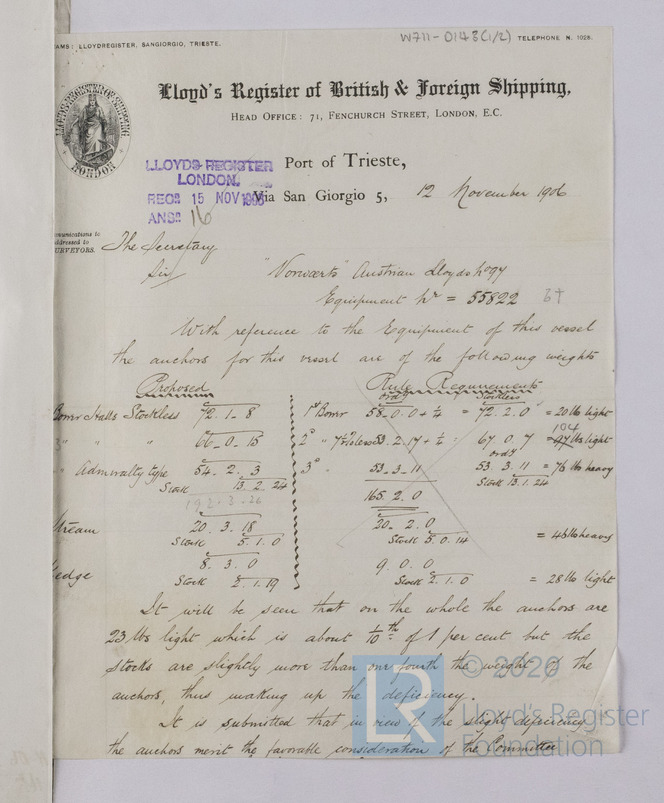 W711-0143(1/2)
AMS: LLOYDREGISTER, SANGIORGIO, TRIESTE.
TELEPHONE N. 1028.
Lloyd's Register of British & Foreign Shipping,
HEAD OFFICE: 71, FENCHURCH STREET, LONDON, E.C.
LLOYD'S REGISTER OF SHIPPING LONDON
LLOYDS REGISTER
LONDON.
RECD 15 NOV 1906
ANSD 16
Port of Trieste,
Via San Giorgio 5, 12 November 1906
mmunications to
addressed to
URVEYORS.
The Secretary
Sir
"Vorwaerts" Austrian Lloyds No 97
Equipment No = 55822
With reference to the Equipment of this vessel
the anchors for this vessel are of the following weights
Proposed
Rule Requirements
ordy Stockless
Bower Halls Stockless 72.1.8 1st Bower 58.0.0 + 1/4 = 72.2.0 = 20 lbs light
" " 66.0.15 2d " 7½% less 53.2.17 + 1/4 = 67 0 7 = 97 104 lbs light
ordy
" Admiralty type 54.2.3 3d " 53.3.11 53.3.11 = 76 lbs heavy
Stock 13.2.24 Stock 13.1.24
192.3.26 165.2.0
Stream 20.3.18 20.2.0
Stock 5.1.0 Stock 5.0.14 = 46 lbs heavy
Kedge 8.3.0 9.0.0
Stock 2.1.19 Stock 2.1.0 = 28 lbs light
It will be seen that on the whole the anchors are
23 lbs light which is about 1/10th of 1 per cent but the
stocks are slightly more than one fourth the weight of the
anchors, thus making up the deficiency.
It is submitted that in view of the slight deficiency
the anchors merit the favorable consideration of the Committee
LR
© 2020
Lloyd's Register
Foundation